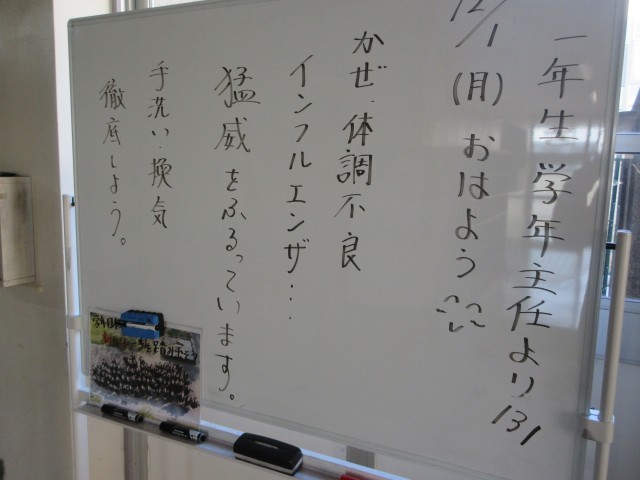 一年生 学年主任より 131
12/1(月)おはよう
かぜ、体調不良
インフルエンザ・・・
猛威をふるっています。
手洗い・換気
徹底しよう。